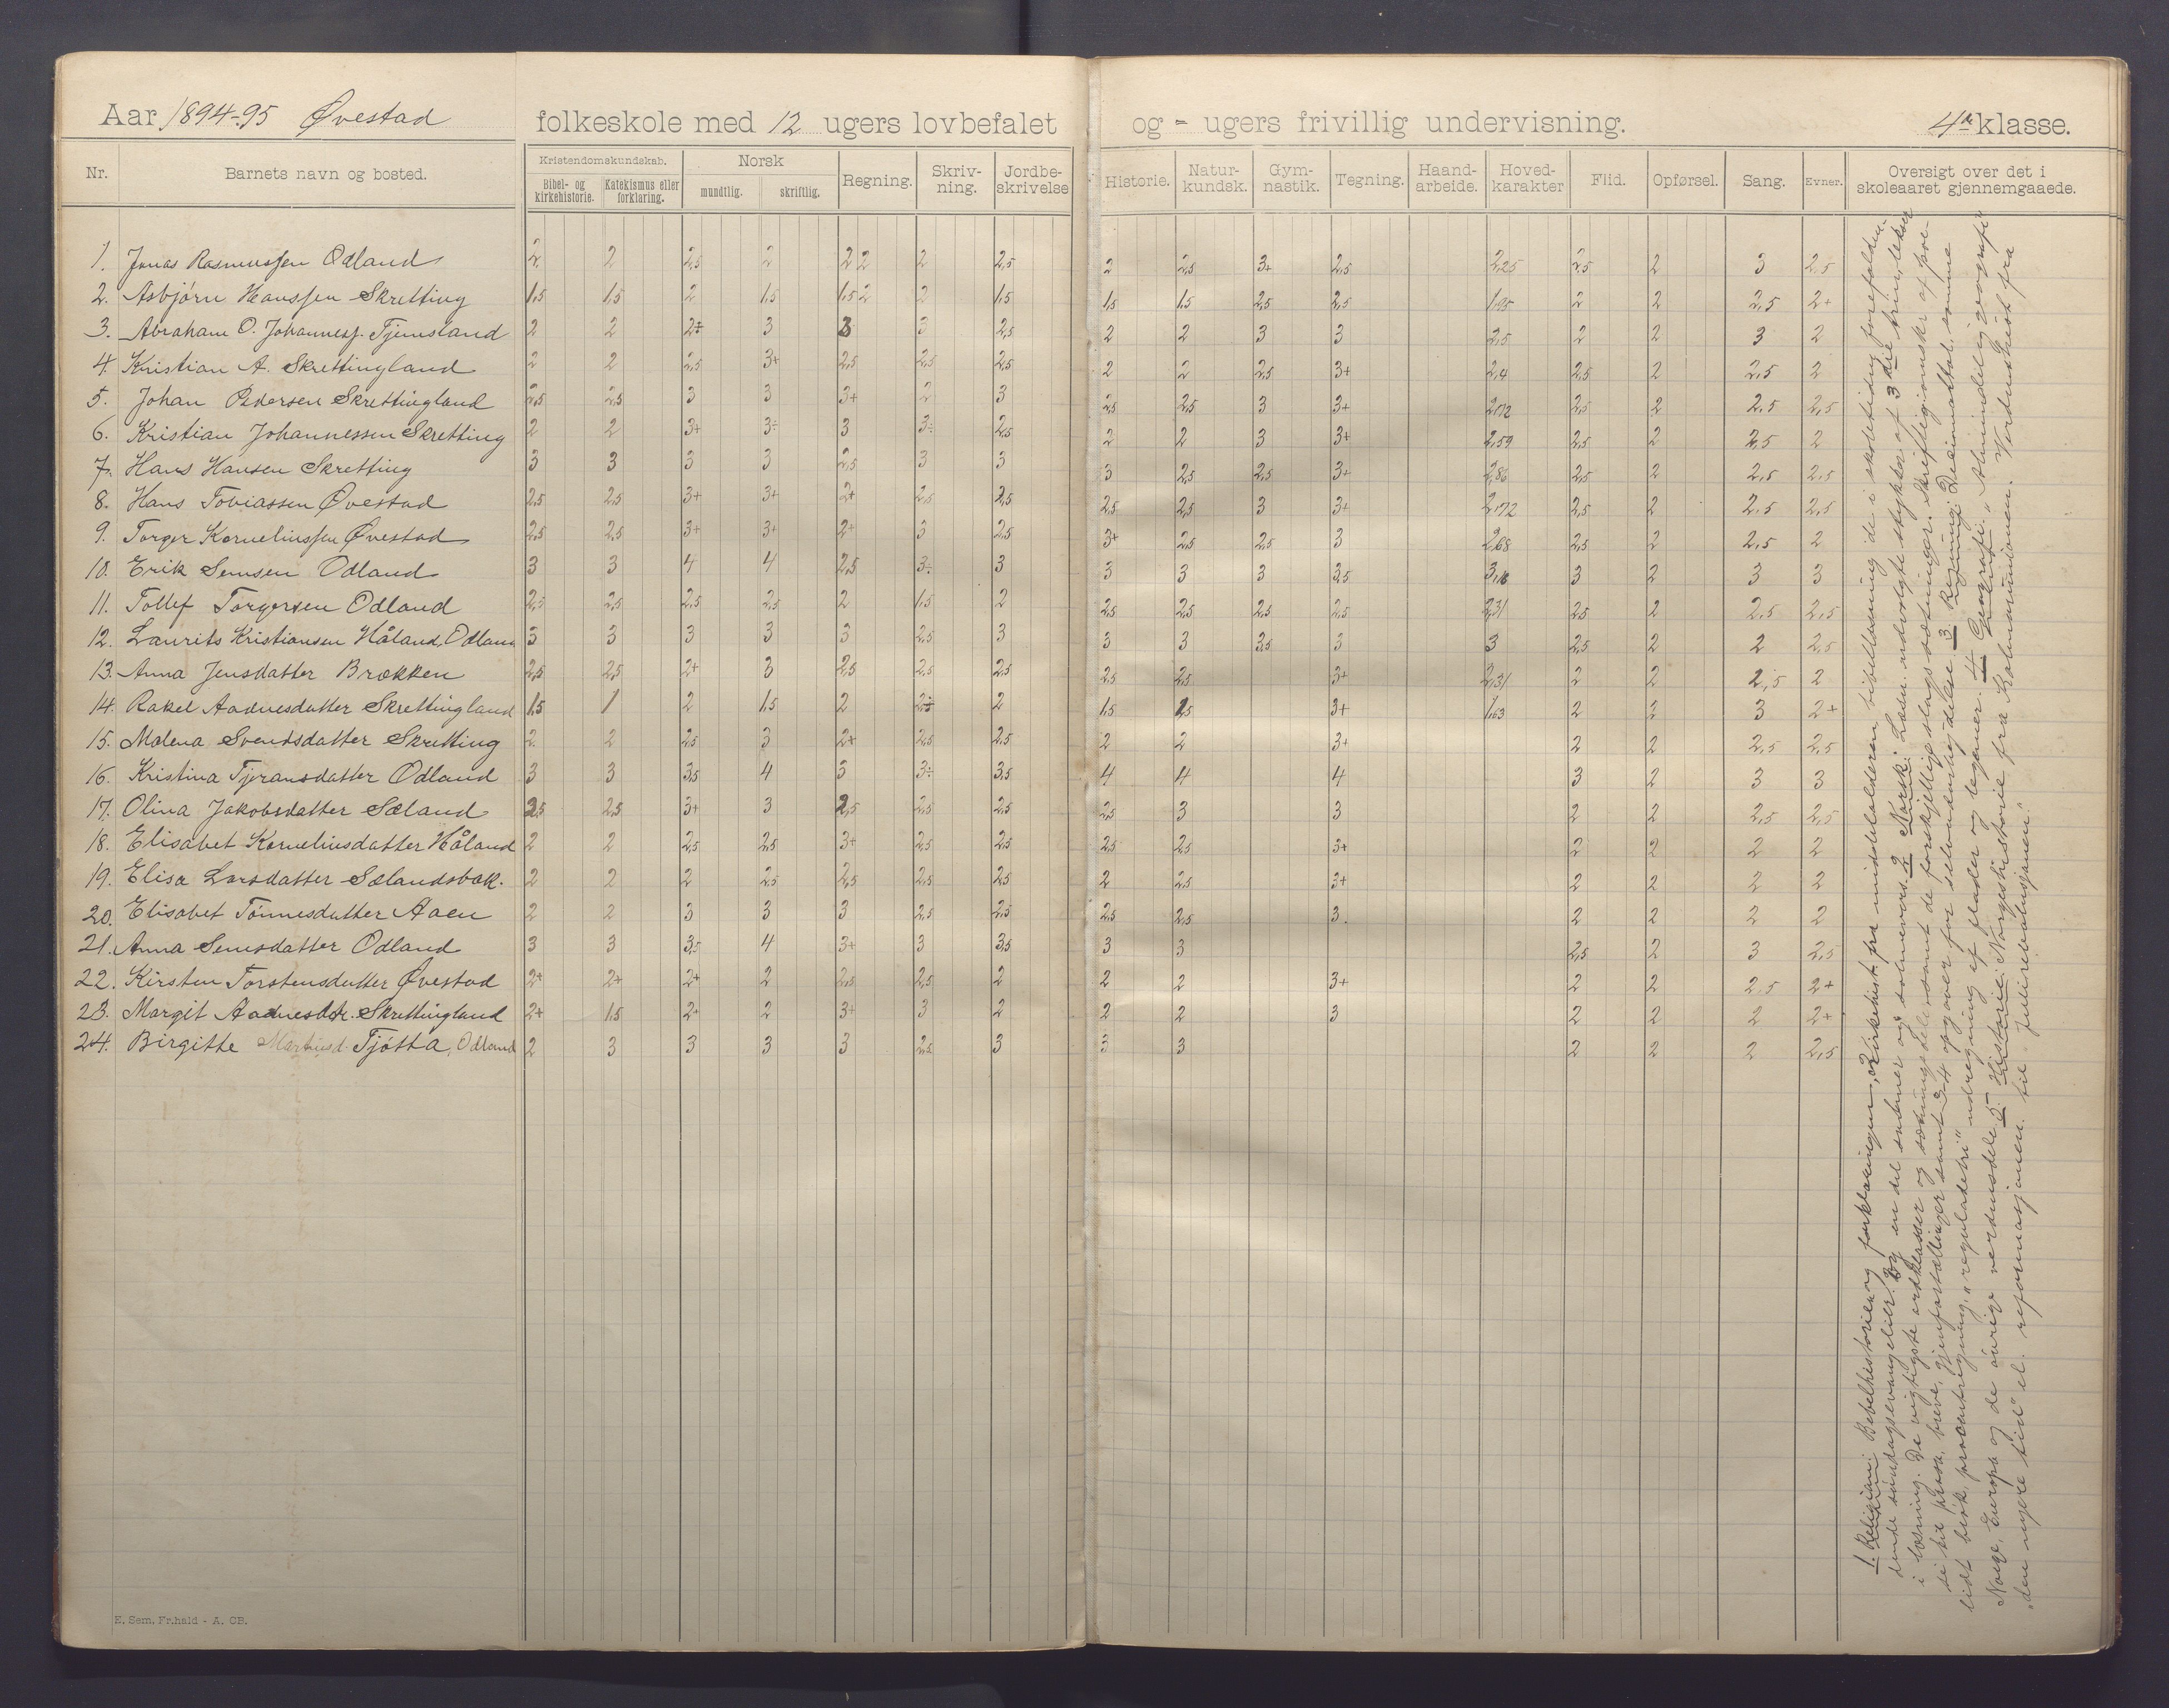 Aar 1894-95 Øvestad folkeskole med 12 ugers lovbefalet og - ugers frivillig undervisning. 4de klasse.
Nr. Barnets navn og bosted. Kristendomskundskab. Norsk Regning. Skriv-ning. Jordbe-skrivelse Historie. Natur-kundsk. Gym-nastik. Tegning. Haand-arbeide. Hoved-karakter Flid. Opførsel. Sang. Evner. Oversigt over det i skoleaaret gjennemgaaede.
Bibel- og kirkehistorie. Katekismus eller forklaring. mundtlig. skriftlig.
1. Jonas Rasmussen Odland 2 2 2,5 2 2 2 2 2,5 2 2,5 3+ 2,5 2,25 2,5 2 3 2,5
2. Asbjørn Hanssen Skretting 1,5 1,5 2 1,5 1,5 2 2 1,5 1,5 1,5 2,5 2,5 1,95 2 2 2,5 2+
3. Abraham O. Johannesf. Tjemsland 2 2 2÷ 3 3 3 2,5 2 2 3 3 2,5 2 2 3 2
4. Kristian A. Skrettingland 2 2 2,5 3+ 2,5 2,5 2,5 2 2 2,5 3+ 2,4 2,5 2 2,5 2
5. Johan Pedersen Skrettingland 2,5 2,5 3 3 3+ 2 3 2,5 2,5 3 3+ 2,72 2,5 2 2,5 2,5
6. Kristian Johannessen Skretting 2 2 3+ 3÷ 3 3÷ 2,5 2 2 3 3+ 2,59 2,5 2 2,5 2
7. Hans Hansen Skretting 3 3 3 3 2,5 3 3 3 2,5 2,5 3+ 2,86 2,5 2 2,5 2,5
8. Hans Tobiassen Øvestad 2,5 2,5 3+ 3+ 2+ 2,5 2,5 2,5 2,5 3 3+ 2,72 2,5 2 2,5 2,5
9. Torger Korneliussen Øvestad 2,5 2,5 3+ 3+ 2+ 3 2,5 3+ 2,5 2,5 3 2,68 2,5 2 2,5 2
10. Erik Semsen Odland 3 3 4 4 2,5 3÷ 3 3 3 3 3,5 3,18 3 2 3 3
11. Tollef Torgersen Odland 2,5 2,5 2,5 2,5 2 1,5 2 2,5 2,5 2,5 2,5 2,31 2,5 2 2,5 2,5
12. Laurits Kristiansen Håland, Odland 3 3 3 3 3 2,5 3 3 3 3,5 3 3 2,5 2 2 2,5
13. Anna Jensdatter Brekken 2,5 2,5 2+ 3 2,5 2,5 2,5 2,5 2,5 3+ 2,31 2 2 2,5 2
14. Rakel Aadnesdatter Skrettingland 1,5 1 2 1,5 2 2÷ 2 1,5 1,5 3+ 1,63 2 2 3 2+
15. Malena Svendsdatter Skretting 2 2 2,5 3 2+ 2,5 2,5 2 2 3+ 2 2 2,5 2,5
16. Kristina Tjeransdatter Odland 3 3 3,5 4 3 3÷ 3,5 4 4 4 3 2 3 3
17. Olina Jakobsdatter Sæland 2,5 2,5 3+ 3 2,5 2,5 2,5 2,5 3 3 2 2 2,5 2,5
18. Elisabet Korneliusdatter Håland 2 2 2,5 2,5 3+ 2,5 2,5 2,5 2,5 3+ 2 2 2 2
19. Elisa Larsdatter Sælandsbak. 2 2 2 2,5 2,5 2,5 2,5 2 2,5 3+ 2 2 2 2
20. Elisabet Tønnesdatter Aaen 2 2 3 3 3 2,5 2,5 2,5 2,5 3 2 2 2 2
21. Anna Semsdatter Odland 3 3 3,5 4 3+ 3 3,5 3 3 2,5 2 3 2,5
22. Kirsten Torstensdatter Øvestad 2+ 2+ 2+ 2 2,5 2,5 2 2 2 3+ 2 2 2,5 2+
23. Margit Aadnesdtr. Skrettingland 2+ 1,5 2+ 2 3+ 3 2 2 2 3 2 2 2 2+
24. Birgitte Martinsd. Tjøtta, Odland 2 3 3 3 3 2,5 3 3 3 2 2 2 2,5
1. Religion: Bibelhistorien og forklaringen, Kirkehist. fra middelalderen, bibellæsning de i skoletiden forefalden-
dende søndagsevangelier og en del salmer og salmevers. 2 Norsk: Læsn. udvalgte stykker af 3die trin, leksen
i læsning. De vigtigste ordklasser og sætningsdele samt de forskjellige slags sætninger. Skriftlig: omskr. af poe-
si til prosa, breve, gjenfortællinger samt opgaver for selvudarbejdelse. 3. Regning: Desimaltal, samme
lidt brøk, procentregning, "reguladetri" udregning af flader og legemer. 4. Geografi: Almindelig geografi
Norge, Europa og de øvrige verdensdele. 5. Historie: Norgeshistorie fra Kalmarunionen. Verdenshist. fra
"den nyere tid" el. reformasjonen til Julirevolusjonen.
E. Sem, Fr.hald - A. CB.